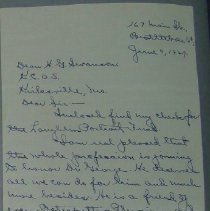 167 Main St.
Brattleboro, Vt.
June 9, 1929.
Dean H. G. Swanson
K. C. O. S.
Kirksville, Mo.
Dear Sir —
Enclosed find my check for
the Laughlin Portrait Fund
I am real pleased that
the whole profession is going
to honor Dr George. He deserves
all we can do for him and much
more besides. He is a friend of